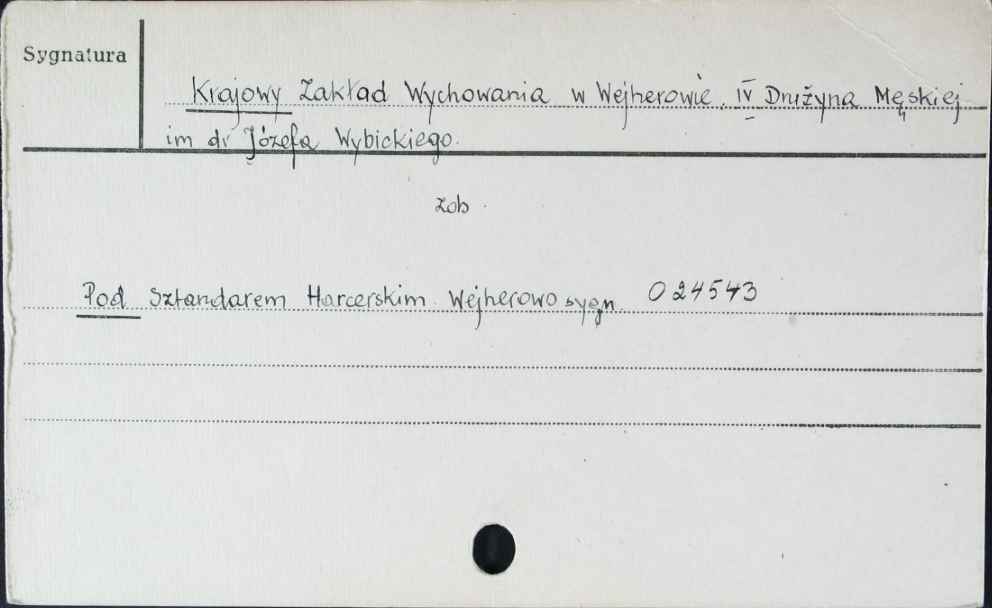 Sygnatura
Krajowy Zakład Wychowania w Wejherowie. IV Drużyna Męskiej
im dr Józefa Wybickiego.
zob.
Pod Sztandarem Harcerskim. Wejherowo sygn. 024543